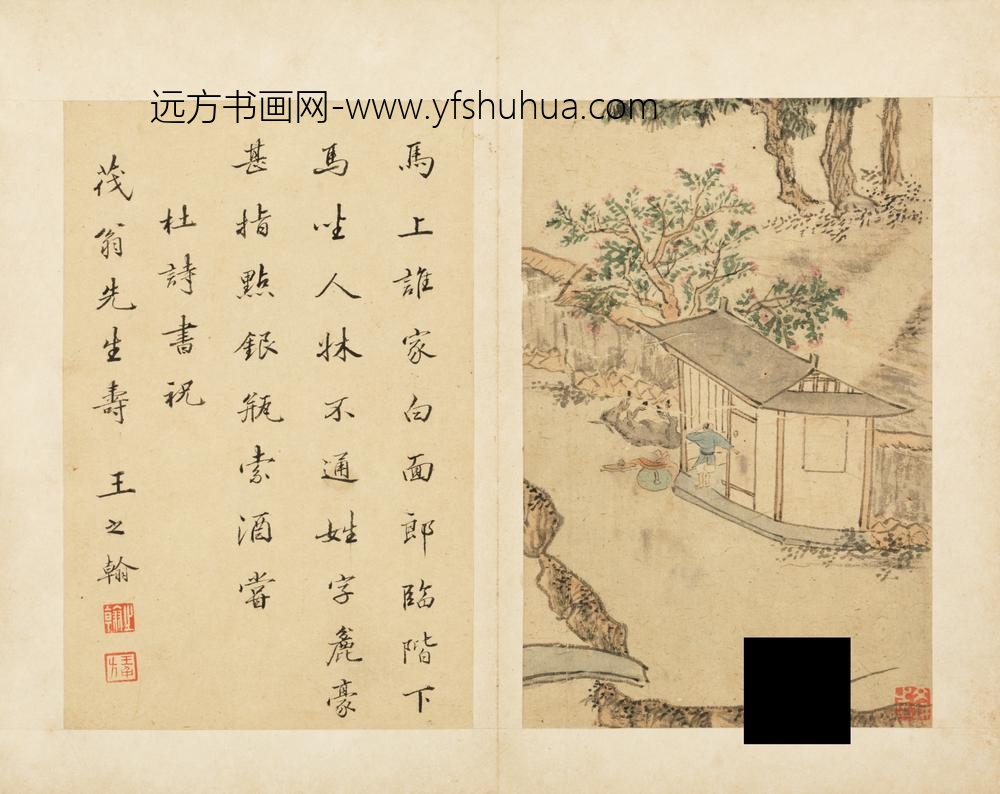 远方书画网-www.yfshuhua.com
馬上誰家白面郎臨階下
馬坐人牀不通姓字麁豪
甚指點銀瓶索酒嘗
杜詩書祝
茂翁先生壽 王之翰